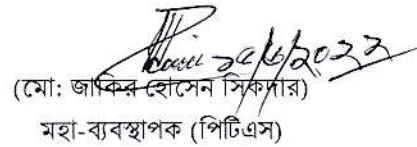 ২৫/৬/২০২২
(মো: জাকির হোসেন সিকদার)
মহা-ব্যবস্থাপক (পিটিএস)